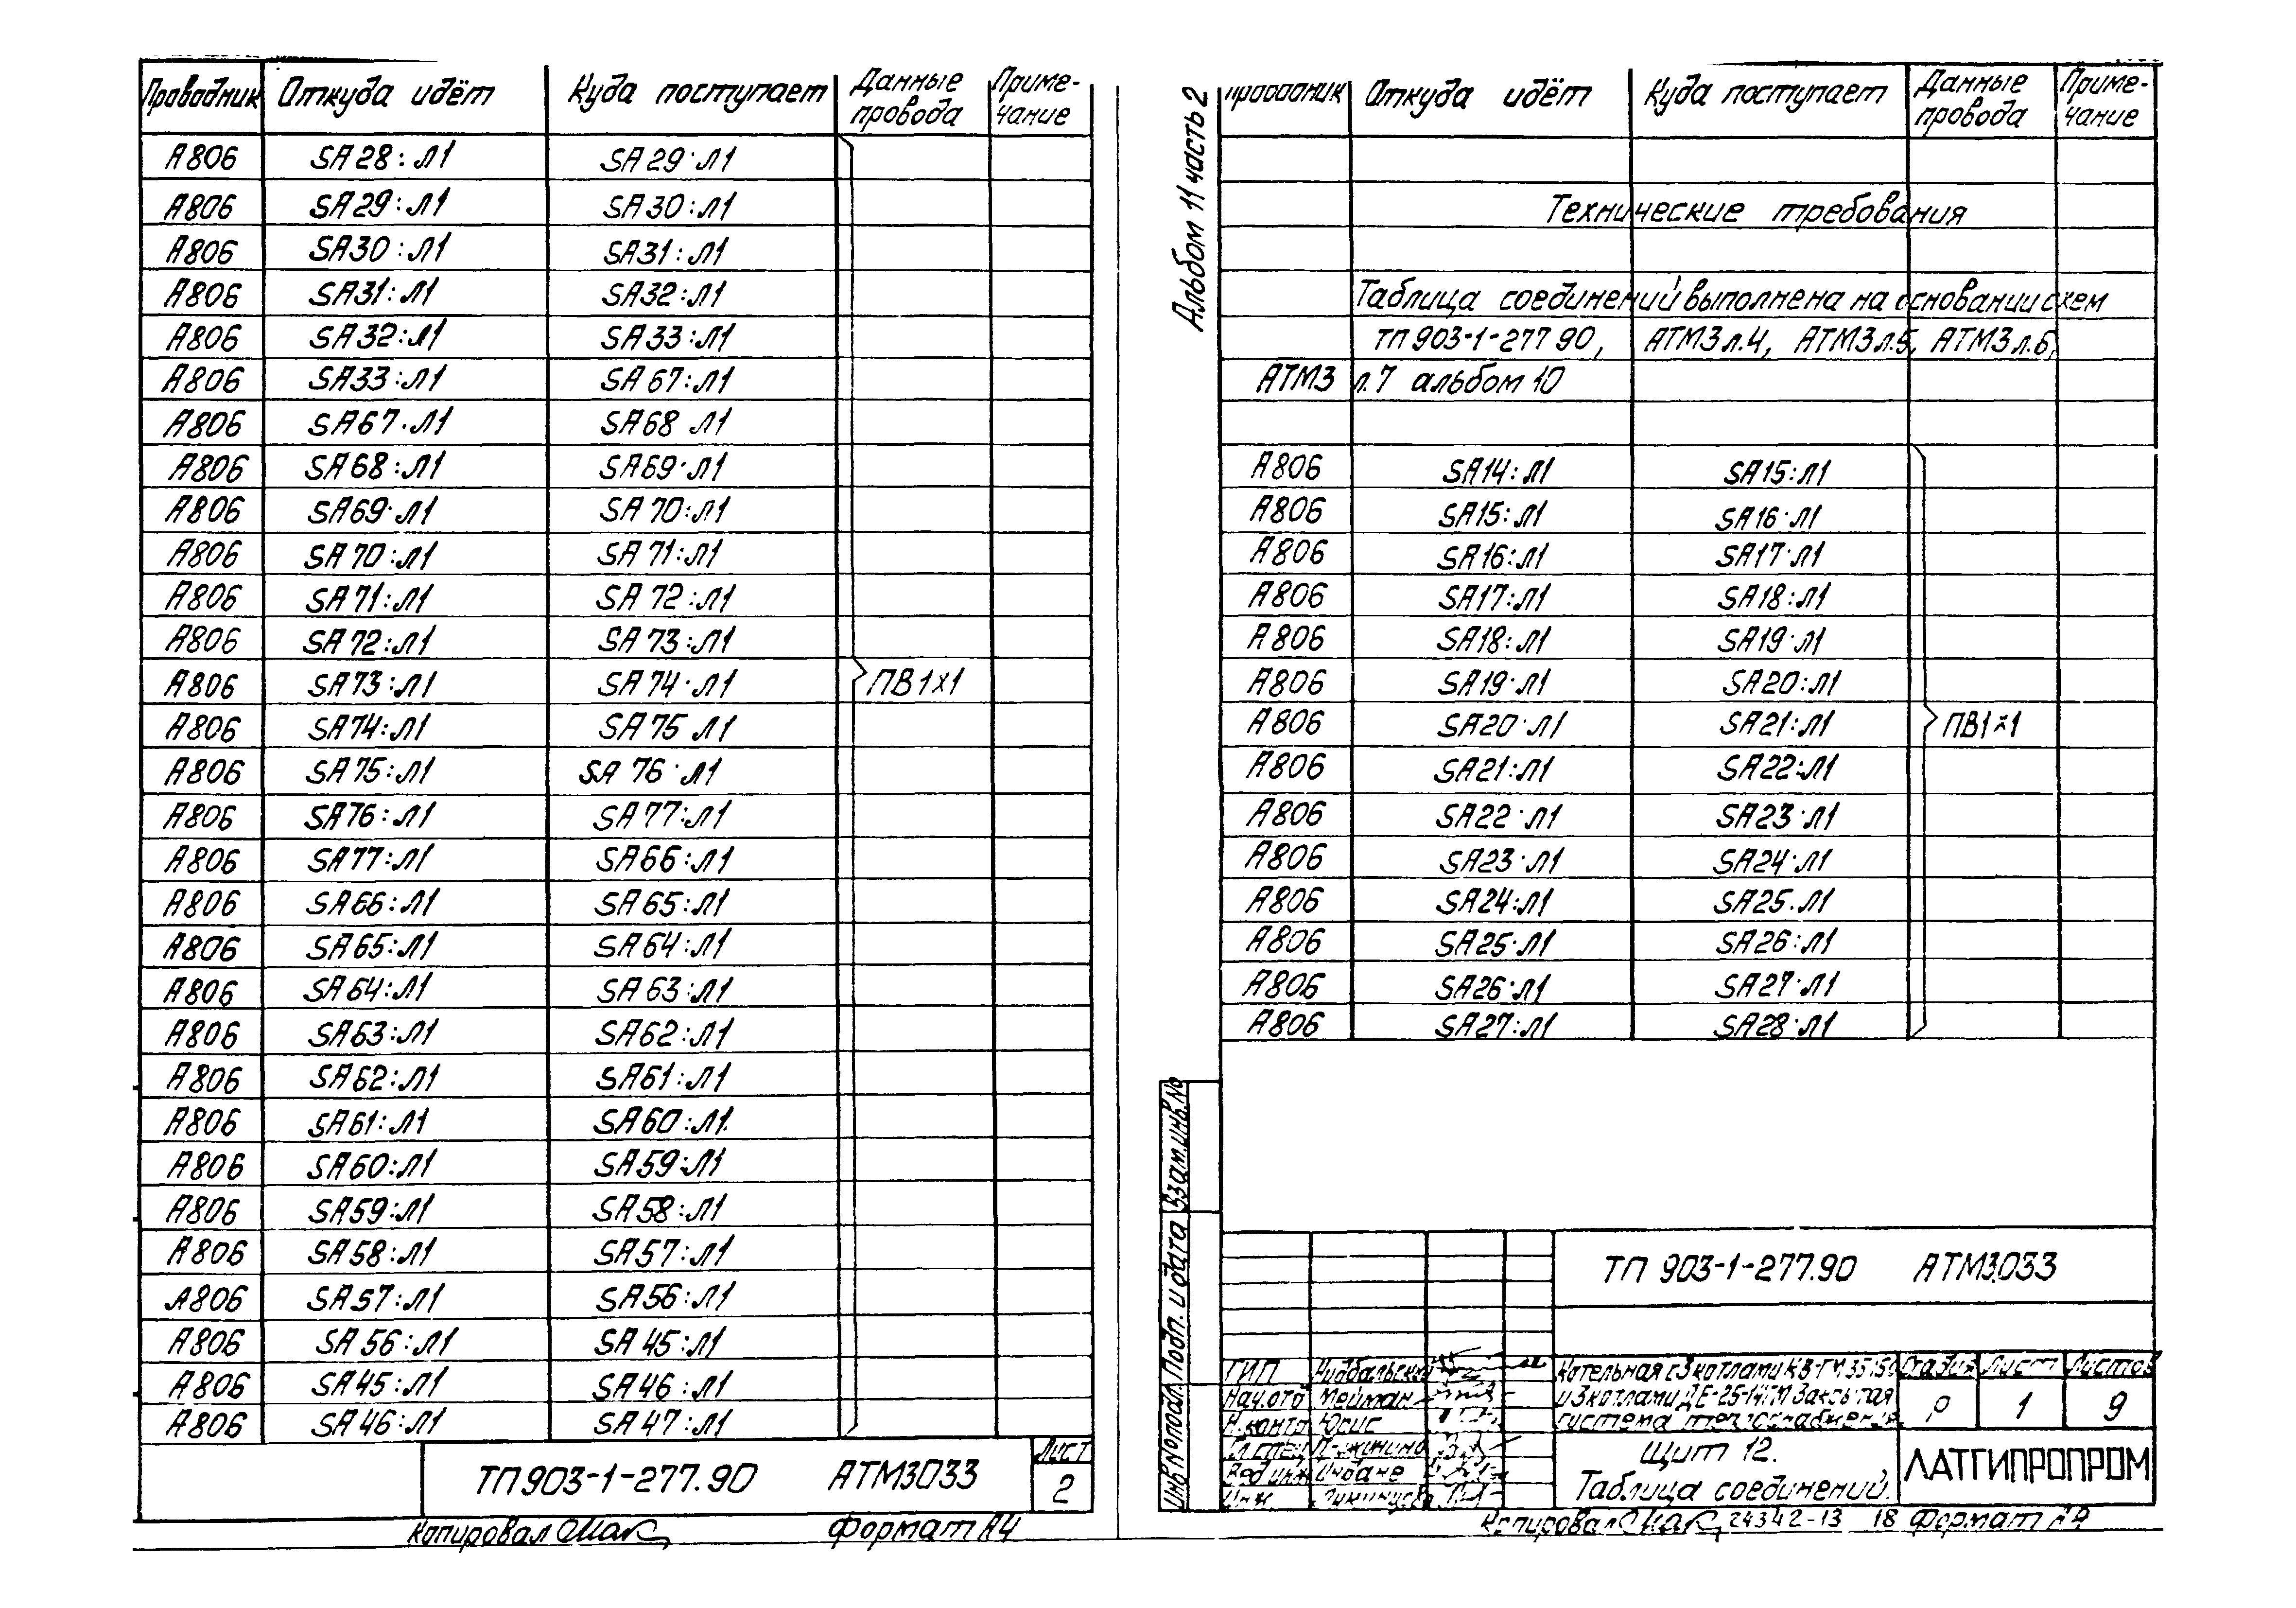 Проводник Откуда идёт Куда поступает Данные провода Приме-чание
А806 SA28:Л1 SA29·Л1
А806 SA29:Л1 SA30:Л1
А806 SA30:Л1 SA31:Л1
А806 SA31:Л1 SA32:Л1
А806 SA32:Л1 SA33:Л1
А806 SA33:Л1 SA67:Л1
А806 SA67·Л1 SA68 Л1
А806 SA68:Л1 SA69·Л1
А806 SA69·Л1 SA70:Л1
А806 SA70:Л1 SA71:Л1
А806 SA71:Л1 SA72:Л1
А806 SA72:Л1 SA73:Л1
А806 SA73:Л1 SA74·Л1 ПВ1х1
А806 SA74:Л1 SA75 Л1
А806 SA75:Л1 SA76·Л1
А806 SA76:Л1 SA77:Л1
А806 SA77:Л1 SA66:Л1
А806 SA66:Л1 SA65:Л1
А806 SA65:Л1 SA64:Л1
А806 SA64:Л1 SA63:Л1
А806 SA63:Л1 SA62:Л1
А806 SA62:Л1 SA61:Л1
А806 SA61:Л1 SA60:Л1
А806 SA60:Л1 SA59:Л1
А806 SA59:Л1 SA58:Л1
А806 SA58:Л1 SA57:Л1
А806 SA57:Л1 SA56:Л1
А806 SA56:Л1 SA45:Л1
А806 SA45:Л1 SA46:Л1
А806 SA46:Л1 SA47:Л1
ТП903-1-277.90 АТМ3033
Лист
2
Копировал Формат А4
Альбом 11 часть 2
Проводник Откуда идёт Куда поступает Данные провода Приме-чание
Технические требования
Таблица соединений выполнена на основании схем
ТП903-1-277 90, АТМ3 л.4, АТМ3 л.5, АТМ3 л.6,
АТМ3 л.7 альбом 10
А806 SA14:Л1 SA15:Л1
А806 SA15:Л1 SA16·Л1
А806 SA16:Л1 SA17·Л1
А806 SA17:Л1 SA18:Л1
А806 SA18:Л1 SA19·Л1
А806 SA19·Л1 SA20:Л1
А806 SA20·Л1 SA21:Л1 ПВ1х1
А806 SA21:Л1 SA22:Л1
А806 SA22·Л1 SA23·Л1
А806 SA23·Л1 SA24·Л1
А806 SA24:Л1 SA25.Л1
А806 SA25·Л1 SA26:Л1
А806 SA26·Л1 SA27·Л1
А806 SA27:Л1 SA28·Л1
Взам.инв.№
Подп. и дата
Инв№подл.
ТП 903-1-277.90 АТМ3.033
ГИП
Нач.отд Мейман
Н.контр Юрис
Гл.спец
Вед.инж Индане
Инж
Котельная с 3 котлами КВ-ГМ 35-150
и 3 котлами ДЕ-25-14ГМ Закрытая
система теплоснабжения
Стадия Лист Листов
Р 1 9
Щит 12.
Таблица соединений.
ЛАТГИПРОПРОМ
Копировал 24342-13 18 Формат А4